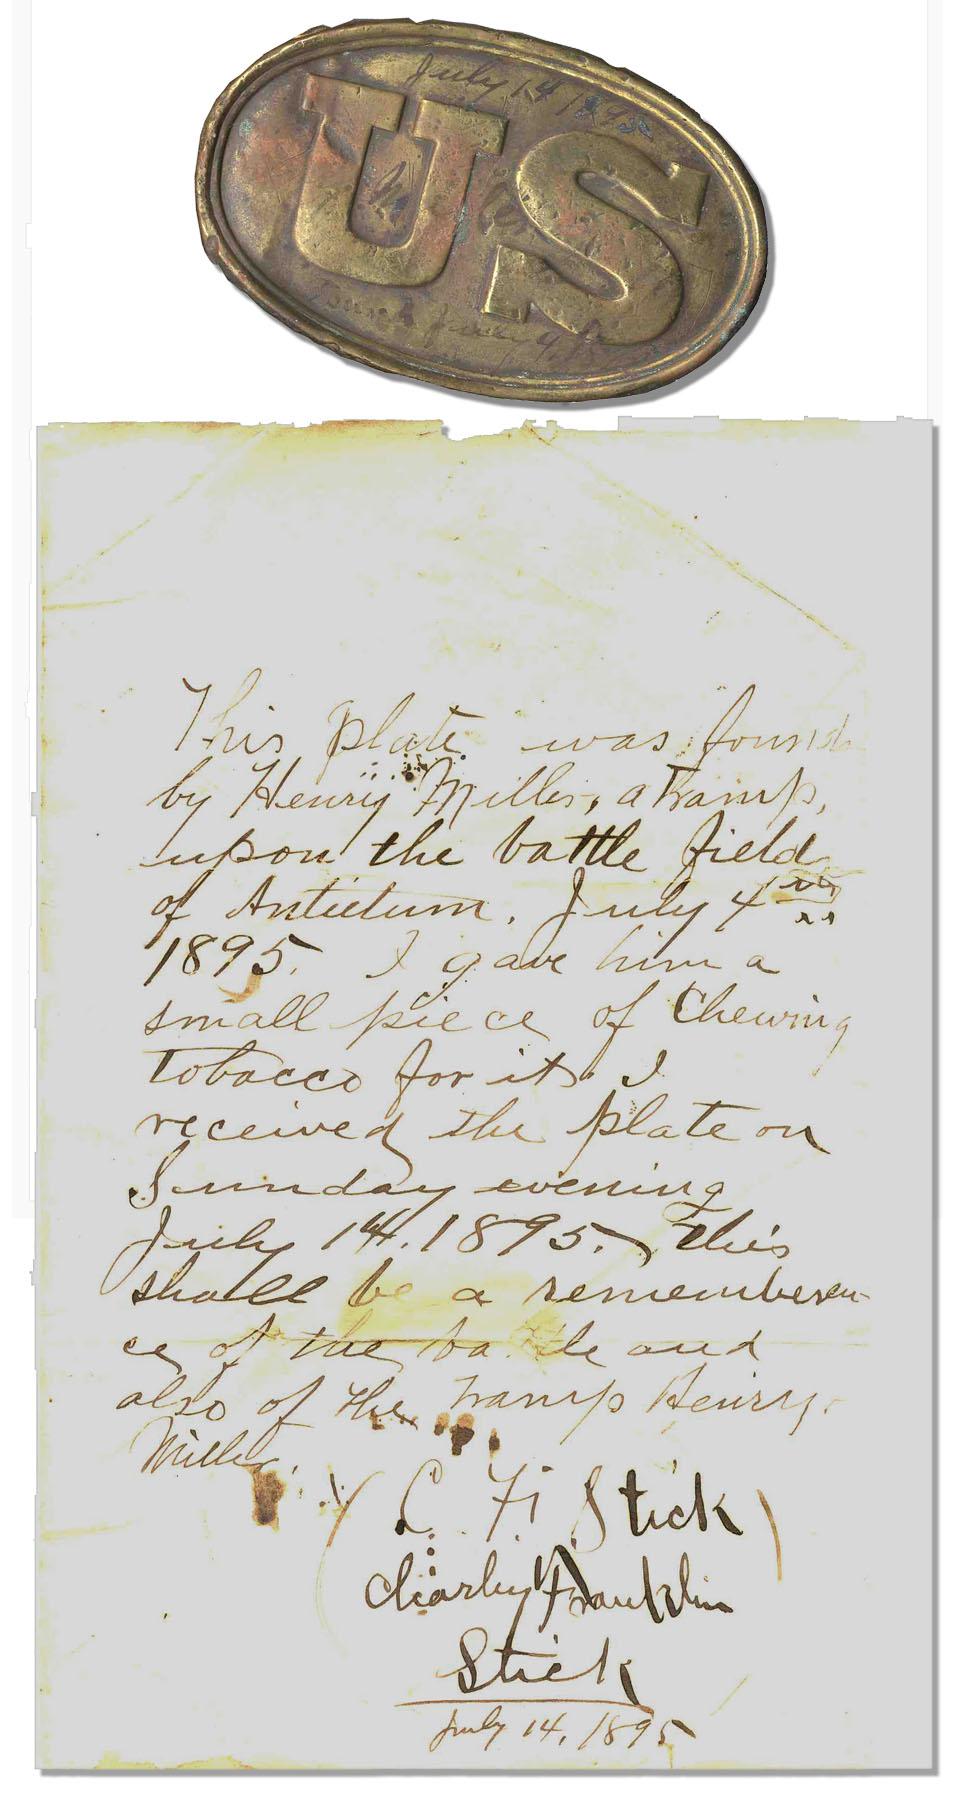 July 14 1895
US
Found July 4
This plate was found
by Henry Miller, a Tramp,
upon the battle field
of Antietum. July 4th
1895. I gave him a
small piece of Chewing
Tobacco for it. I
received the plate on
Sunday evening
July 14. 1895. This
shall be a rememberen-
ce of the battle and
also of the Tramp Henry
Miller.
(C. F. Stick)
Charley Franklin
Stick
July 14, 1895